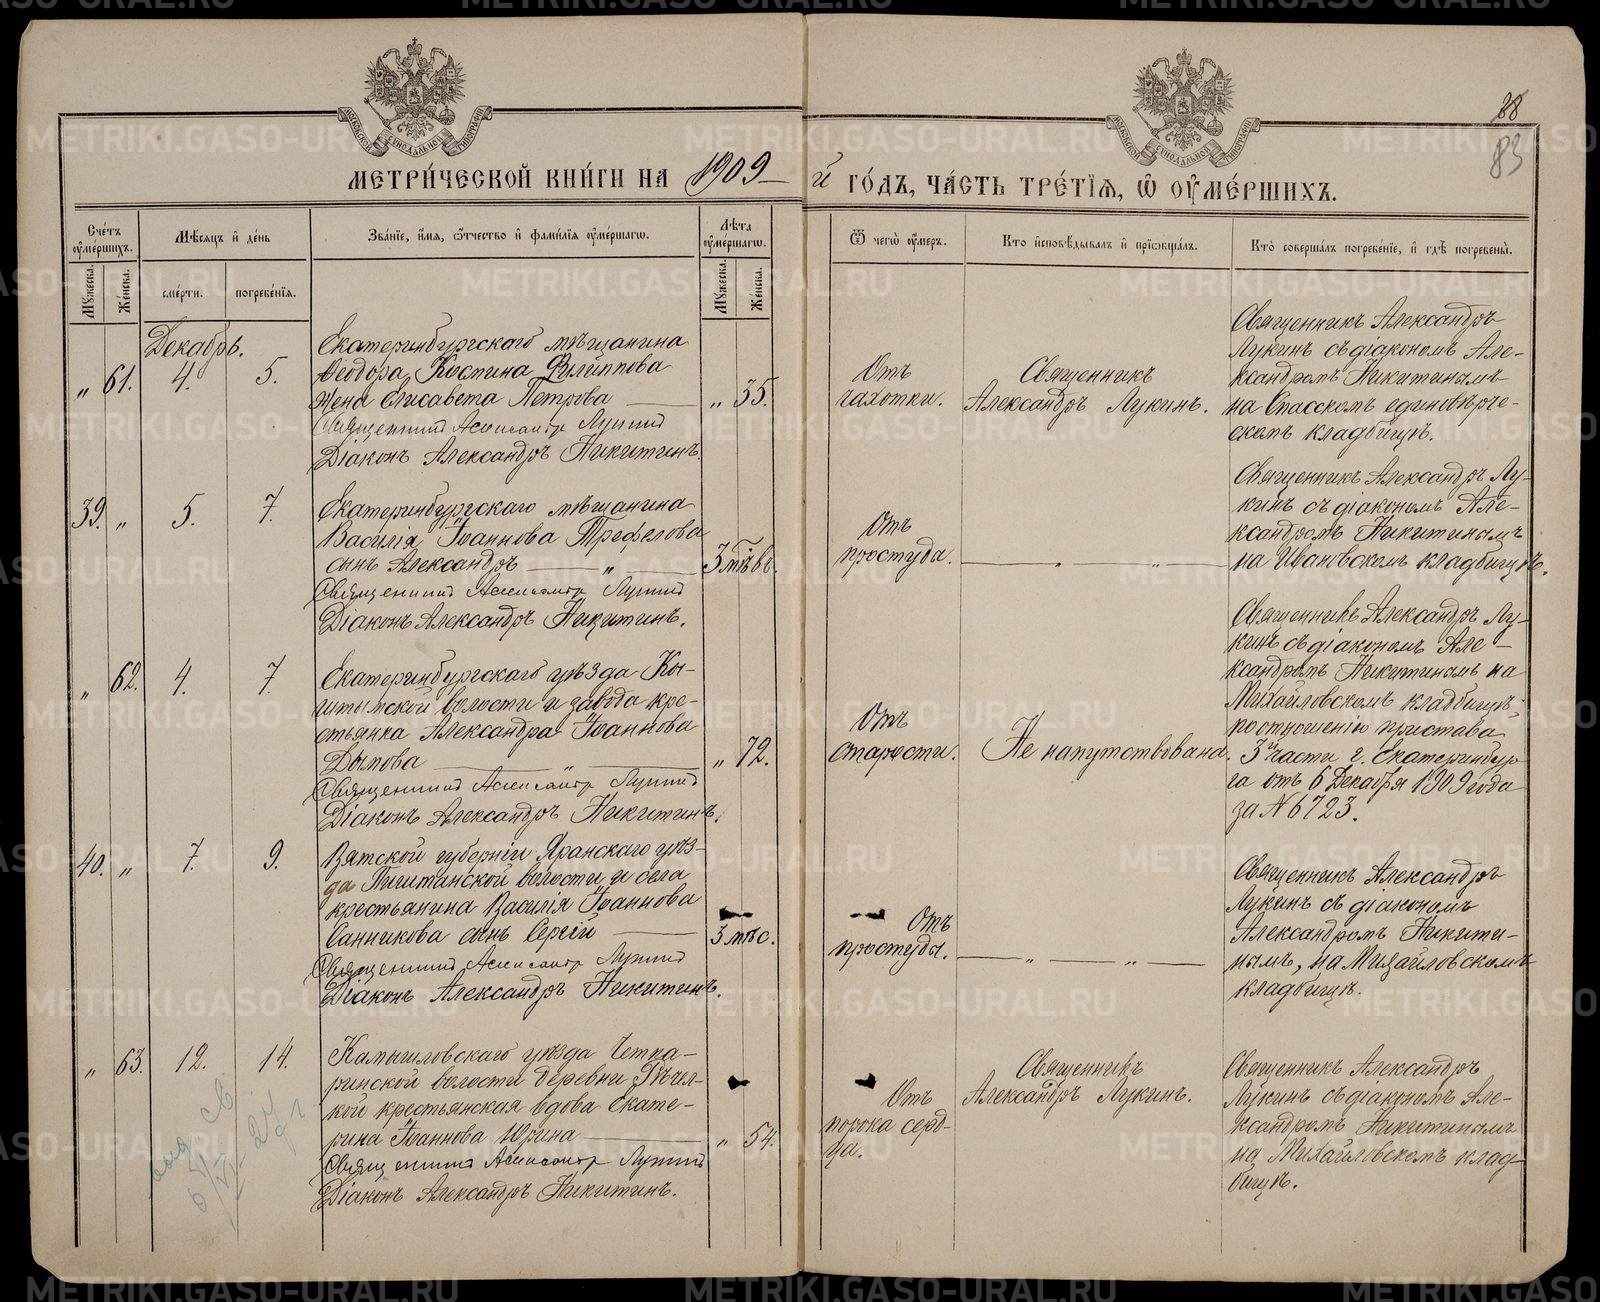 МОСКОВСКОЙ СѴНОДАЛЬНОЙ ТИПОГРАФІИ
МОСКОВСКОЙ СѴНОДАЛЬНОЙ ТИПОГРАФІИ
88
83
МЕТРИ́ЧЕСКОЙ КНИ́ГИ НА 1909-й ГО́ДЪ, ЧА́СТЬ ТРЕ́ТІѦ, Ѡ҆ ОУ҆МЕ́РШИХЪ.
Сче́тъ оу҆ме́ршихъ.
Мꙋжеска.
Же́нска.
Мѣ́сѧцъ и҆ де́нь
сме́рти.
погребе́нїѧ.
Зва́нїе, и҆́мѧ, ѻ҆́тчество и҆ фами́лїѧ оу҆ме́ршагѡ.
Лѣ́та оу҆ме́ршагѡ.
Мꙋжеска.
Же́нска.
Ѿ чегѡ̀ оу҆́меръ.
Кто̀ и҆сповѣ́дывалъ и҆ прїѡбща́лъ.
Кто̀ соверша́лъ погребе́нїе, и҆ гдѣ̀ погребены̀.
Декабрь.
„ 61. 4. 5.
Екатеринбургскаго мѣщанина
Ѳеодора Костина Филиппова
жена Елисавета Петрова
„ 35.
Священникъ Александръ Лукинъ
Діаконъ Александръ Никитинъ.
Отъ
чахотки.
Священникъ
Александръ Лукинъ.
Священникъ Александръ
Лукинъ съ діакономъ Але-
ксандромъ Никитинымъ
на Спасскомъ единовѣрче-
скомъ кладбищѣ.
39. „ 5. 7.
Екатеринбургскаго мѣщанина
Василія Іоаннова Трефелова
сынъ Александръ „
3 мѣсяцевъ
Священникъ Александръ Лукинъ
Діаконъ Александръ Никитинъ.
Отъ
простуды.
„ „
Священникъ Александръ Лу-
кинъ съ діакономъ Але-
ксандромъ Никитинымъ
на Ивановскомъ кладбищѣ.
„ 62. 4. 7.
Екатеринбургскаго уѣзда Кы-
штымской волости и завода кре-
стьянка Александра Іоаннова
Дымова „
„ 72.
Священникъ Александръ Лукинъ
Діаконъ Александръ Никитинъ.
Отъ
старости.
Не напутствована.
Священникъ Александръ Лу-
кинъ съ діакономъ Але-
ксандромъ Никитинымъ на
Михайловскомъ кладбищѣ,
по отношенію пристава
3й части г. Екатеринбур-
га отъ 6 Декабря 1909 года
за №6723.
40. „ 7. 9.
Вятской губерніи Яранскаго уѣз-
да Пиштанской волости и села
крестьянина Василія Іоаннова
Санникова сынъ Сергій
3 мѣс.
Священникъ Александръ Лукинъ
Діаконъ Александръ Никитинъ.
Отъ
простуды.
„ „
Священникъ Александръ
Лукинъ съ діакономъ
Александромъ Никити-
нымъ, на Михайловскомъ
кладбищѣ.
„ 63. 12. 14.
Камышловскаго уѣзда Четка-
ринской волости деревни
кой крестьянская вдова Екате-
рина Іоаннова Юрина
„ 54.
Священникъ Александръ Лукинъ
Діаконъ Александръ Никитинъ.
Отъ
порока серд-
ца.
Священникъ
Александръ Лукинъ.
Священникъ Александръ
Лукинъ съ діакономъ Але-
ксандромъ Никитинымъ
на Михайловскомъ клад-
бищѣ.
METRIKI.GASO-URAL.RU